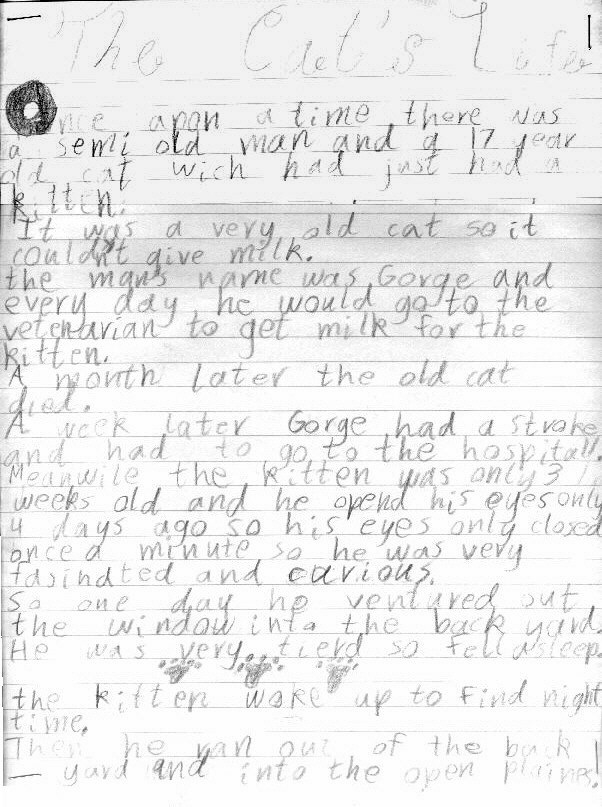 The Cat's Life
Once apon a time there was
a semi old man and a 17 year
old cat wich had just had a
kitten.
It was a very old cat so it
couldn't give milk.
the man's name was Gorge and
every day he would go to the
vetenarian to get milk for the
kitten.
A month later the old cat
died.
A week later Gorge had a stroke
and had to go to the hospitall.
Meanwile the kitten was only 3
weeks old and he opend his eyes only
4 days ago so his eyes only closed
once a minute so he was very
fasindted and carious.
So one day he ventured out
the window into the back yard.
He was very tierd so fell asleep.
the kitten woke up to find night
time.
Then he ran out of the back
yard and into the open plaines!